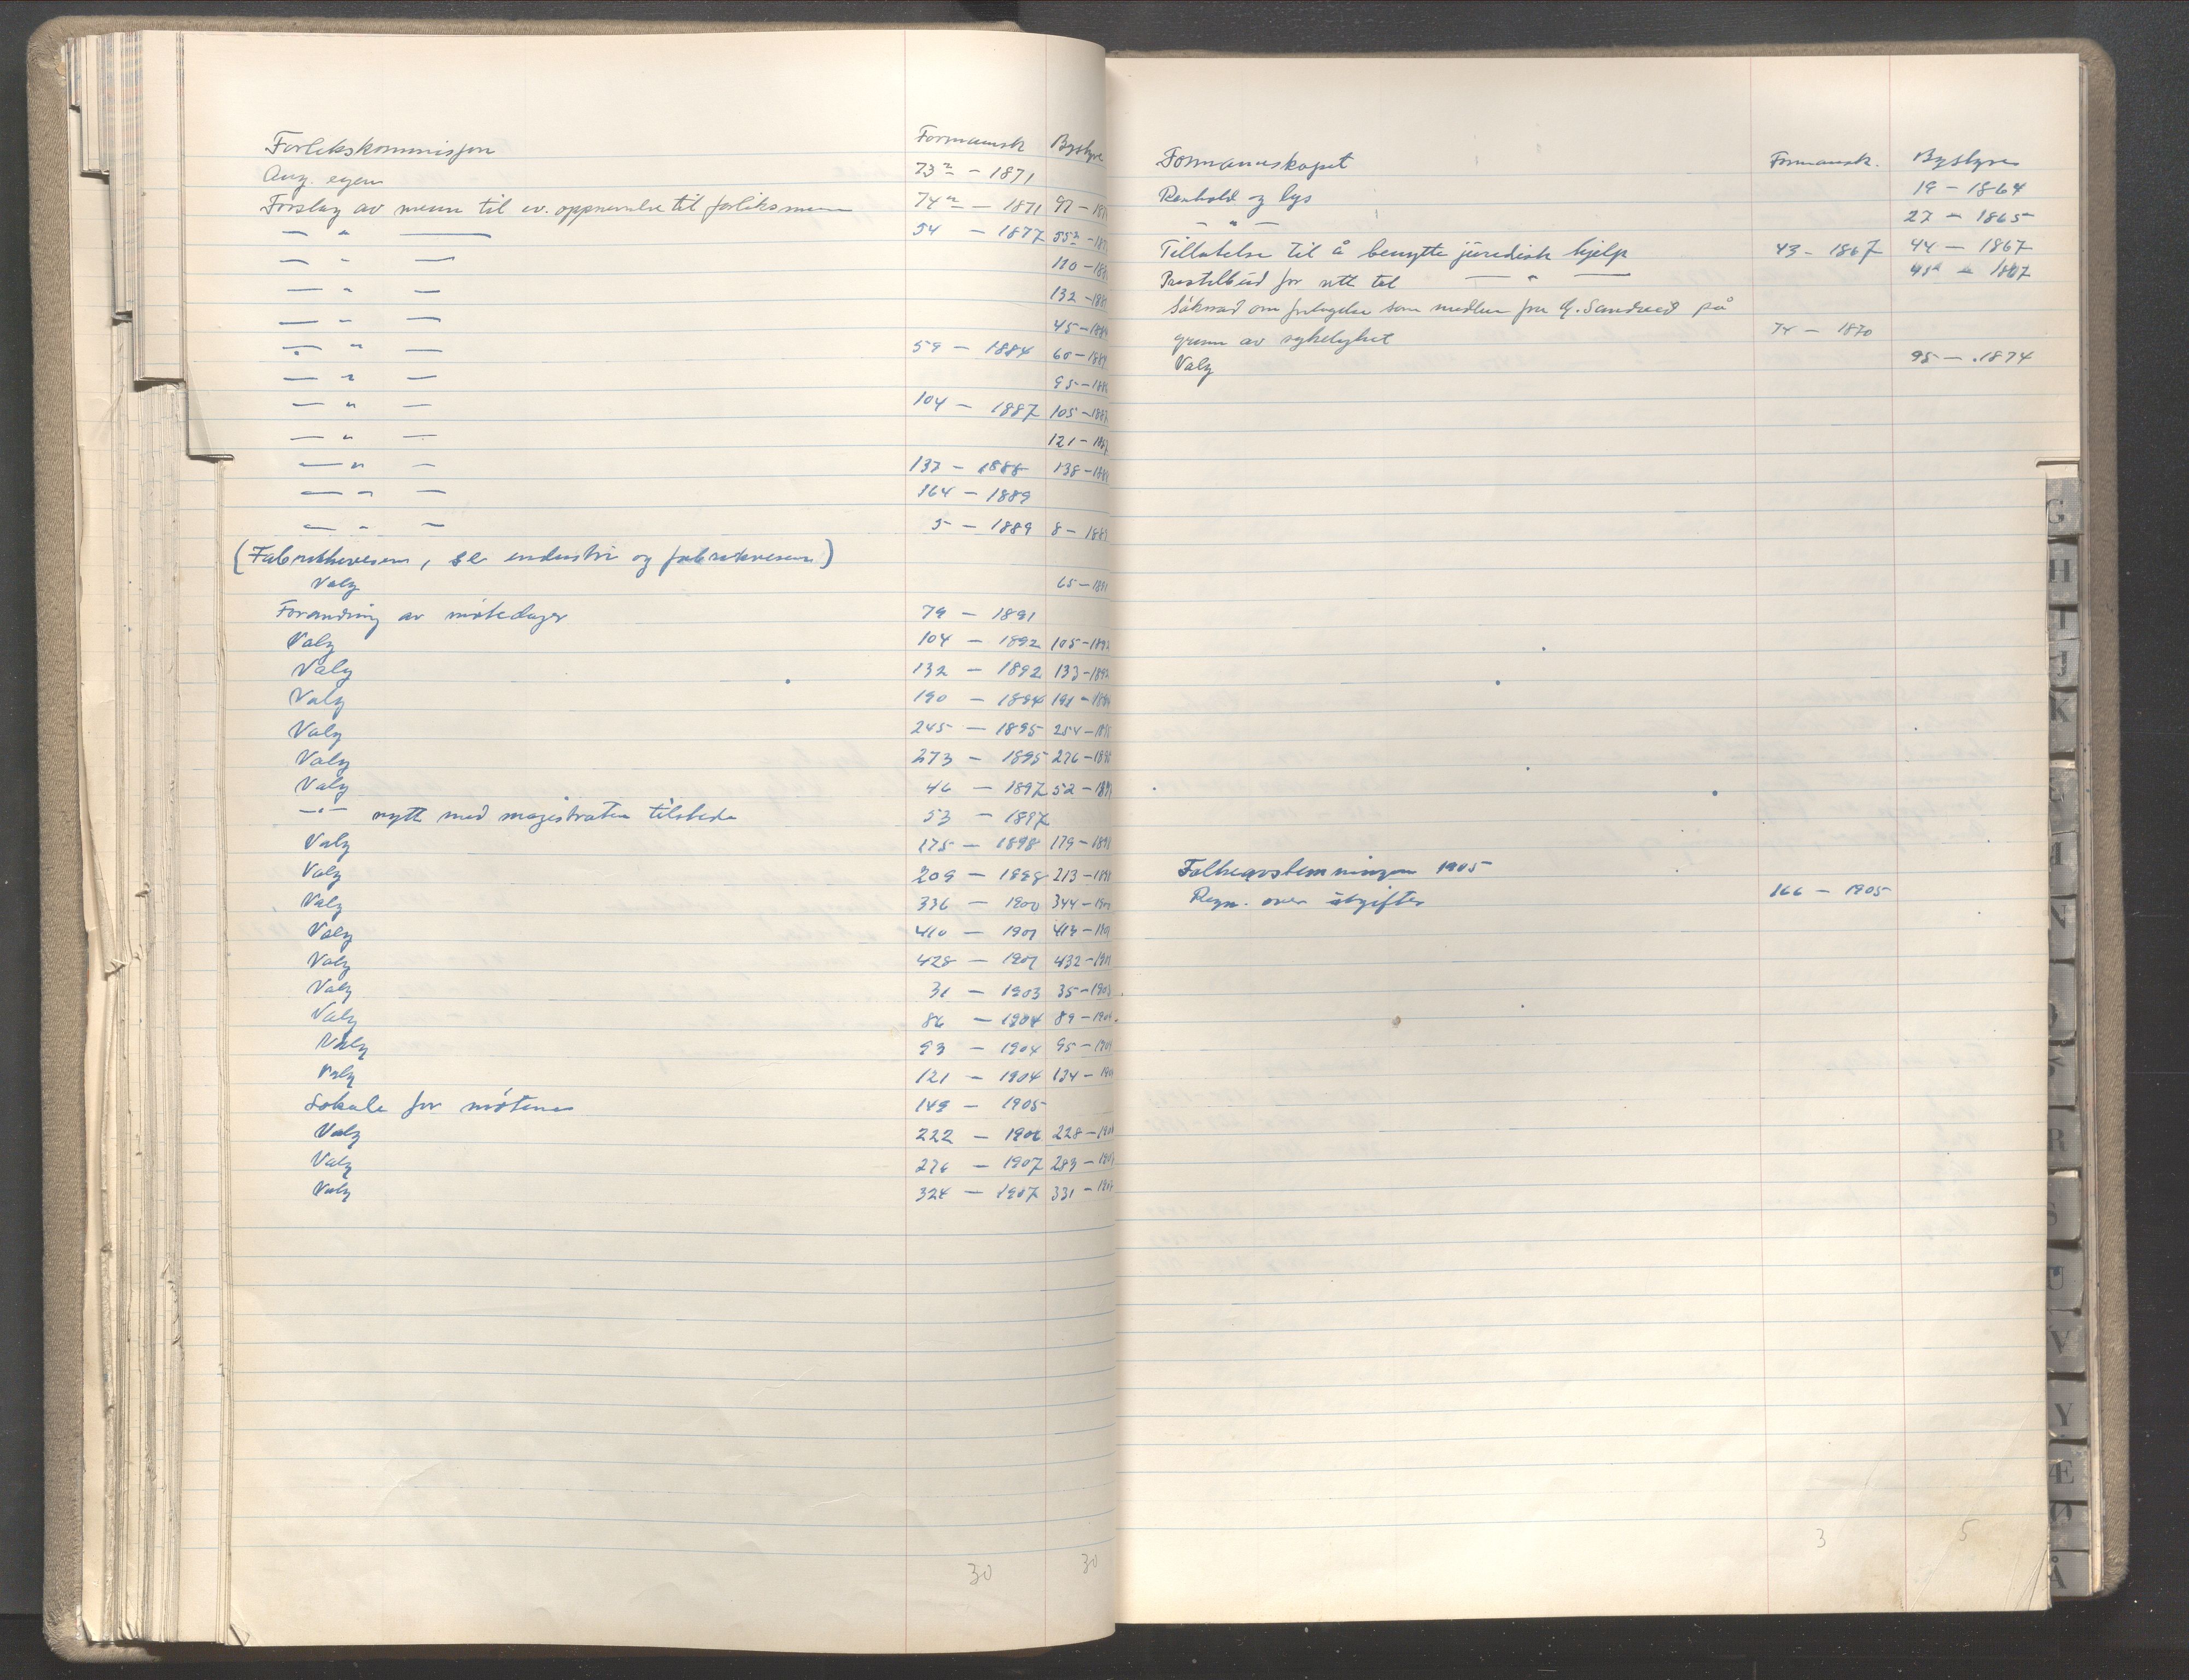 Forlikskommisjon Formannsk Bystyre
Ang. egen 73ⁿ — 1871
Forslag av menn til ev. oppnevnelse til forliksmenn 74ⁿ — 1871 97 — 18
— " — 54 — 1877 55ⁿ — 187
— " — 110 — 188
— " — 132 — 188
— " — 45 — 188
— " — 59 — 1884 60 — 188
— " — 95 — 188
— " — 104 — 1887 105 — 188
— " — 121 — 188
— " — 137 — 1888 138 — 188
— " — 164 — 1889
— " — 5 — 1889 8 — 188
(Fabrikkvesen, se industri og fabrikkvesen)
Valg 65 — 1891
Forandring av møtedager 79 — 1891
Valg 104 — 1892 105 — 1892
Valg 132 — 1892 133 — 1892
Valg 190 — 1894 191 — 1894
Valg 245 — 1895 254 — 1895
Valg 273 — 1895 276 — 1895
Valg 46 — 1897 52 — 1897
— " — nytt med magistraten tilstede 53 — 1897
Valg 175 — 1898 179 — 1898
Valg 209 — 1898 213 — 1898
Valg 336 — 1900 344 — 1900
Valg 410 — 1901 413 — 1901
Valg 428 — 1901 432 — 1901
Valg 31 — 1903 35 — 1903
Valg 86 — 1904 89 — 1904
Valg 93 — 1904 95 — 1904
Valg 121 — 1904 134 — 1904
Lokale for møtene 149 — 1905
Valg 222 — 1906 228 — 1906
Valg 276 — 1907 283 — 1907
Valg 324 — 1907 331 — 1907
30 30
Formannskapet Formannsk. Bystyre
Renhold og lys 19 — 1864
— " — 27 — 1865
Tillatelse til å benytte juridisk hjelp 43 — 1867 44 — 1867
Pristilbud for rett til — " — 45ᵃ — 1867
Søknad om fritagelse som medlem fra G. Sandved på
grunn av sykelighet 74 — 1870
Valg 95 — 1874
Folkeavstemningen 1905
Regn. over utgifter 166 — 1905
3 5
G
H
I
J
K
N
R
S
U
V
Y
Æ
Å